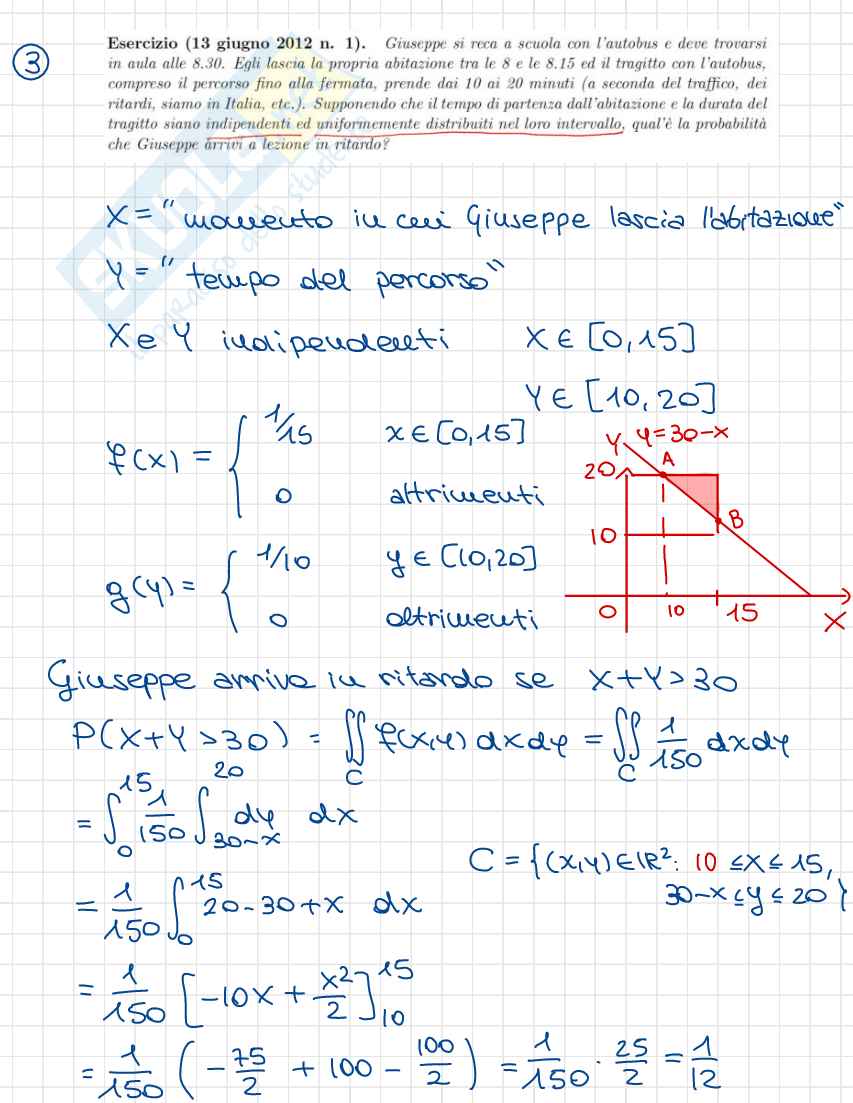 3
Esercizio (13 giugno 2012 n. 1). Giuseppe si reca a scuola con l'autobus e deve trovarsi
in aula alle 8.30. Egli lascia la propria abitazione tra le 8 e le 8.15 ed il tragitto con l'autobus,
compreso il percorso fino alla fermata, prende dai 10 ai 20 minuti (a seconda del traffico, dei
ritardi, siamo in Italia, etc.). Supponendo che il tempo di partenza dall'abitazione e la durata del
tragitto siano indipendenti ed uniformemente distribuiti nel loro intervallo, qual'è la probabilità
che Giuseppe arrivi a lezione in ritardo?
X = "momento in cui Giuseppe lascia l'abitazione"
Y = "tempo del percorso"
X e Y indipendenti X ∈ [0,15]
Y ∈ [10,20]
f(x) = { 1/15 x ∈ [0,15]
0 altrimenti
g(y) = { 1/10 y ∈ [10,20]
0 altrimenti
Y y=30-x
20 A
10 B
0 10 15 X
Giuseppe arriva in ritardo se X+Y>30
P(X+Y>30) = ∬_C f(x,y) dxdy = ∬_C 1/150 dxdy
= ∫_0^15 1/150 ∫_{30-x}^{20} dy dx
C = {(x,y) ∈ ℝ²: 10 ≤ x ≤ 15,
30-x ≤ y ≤ 20}
= 1/150 ∫_0^15 20-30+x dx
= 1/150 [-10x + x²/2]_10^15
= 1/150 (-75/2 + 100 - 100/2) = 1/150 · 25/2 = 1/12